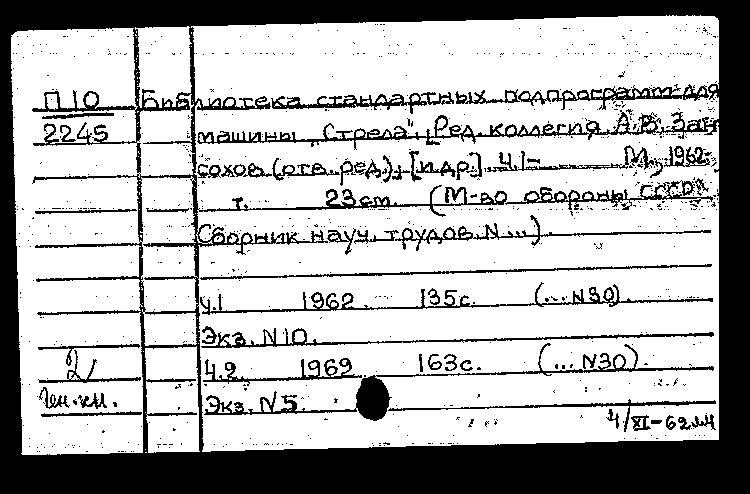 П10 Библиотека стандартных подпрограмм для
2245 машины „Стрела". [Ред. коллегия А.В. Зан-
сохов (отв. ред.), [и др.] Ч.1- М., 1962-
т. 23 см. (М-во обороны СССР
Сборник науч. трудов. N ...).
ч.1 1962. 135с. (...N30).
Экз. N10.
2 Ч.2. 1969 163с. (...N30).
Экз. N5.
4/XI-62